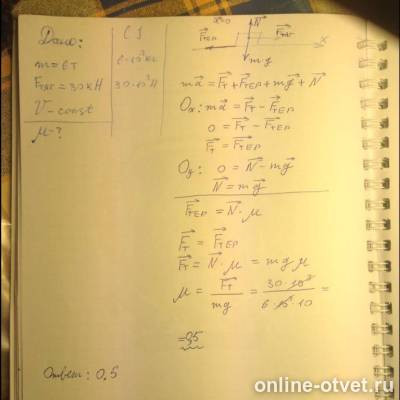 Дано:
m=6т
Fтяг=30кН
V-const
μ-?
СИ
6·10³кг
30·10³Н
a=0
N
Fтер
Fтяг
x
mg
ma = Fт + Fтер + mg + N
Ox: ma = Fт - Fтер
0 = Fт - Fтер
Fт = Fтер
Oy: 0 = N - mg
N = mg
Fтер = N · μ
Fт = Fтер
Fт = N · μ = mg μ
μ = Fт/mg = 30·10³/6·10³·10 =
=0,5
Ответ: 0,5
online-otvet.ru